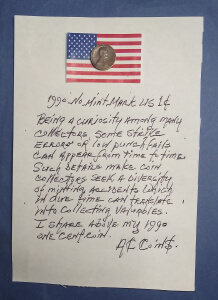 1990 No Mint Mark US 1¢
Being a curiosity among many
collectors, some strike
errors or low punch fails
can appear from time to time.
Such details make coin
collectors seek a diversity
of minting accidents which
in due time can translate
into collecting valuables.
I share above my 1990
one cent coin.